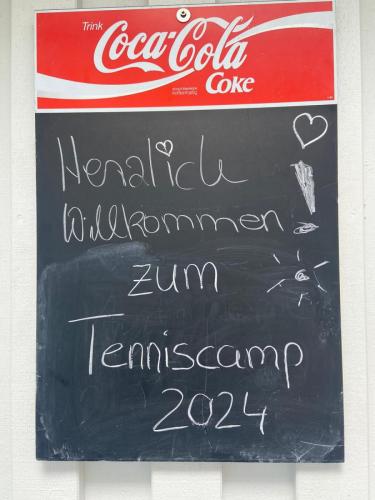 Trink
Coca-Cola
Coke
koffeinhaltig
Herzlich
Willkommen!
zum
Tenniscamp
2024